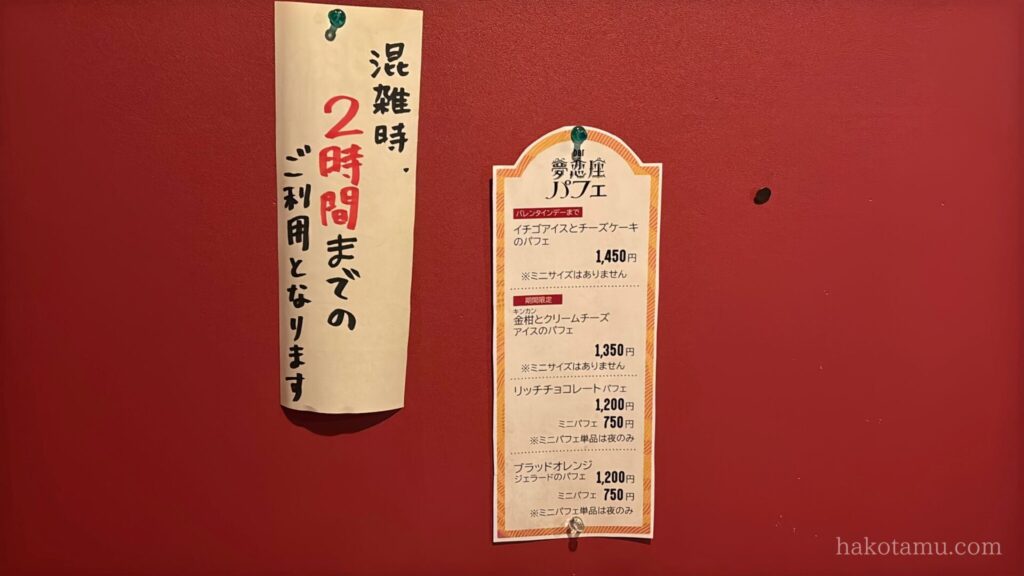 混雑時.
2時間までの
ご利用となります
夢恋座
パフェ
バレンタインデーまで
イチゴアイスとチーズケーキ
のパフェ
1,450円
※ミニサイズはありません
期間限定
キンカン
金柑とクリームチーズ
アイスのパフェ
1,350円
※ミニサイズはありません
リッチチョコレートパフェ
1,200円
ミニパフェ 750円
※ミニパフェ単品は夜のみ
ブラッドオレンジ
ジェラードのパフェ 1,200円
ミニパフェ 750円
※ミニパフェ単品は夜のみ
hakotamu.com